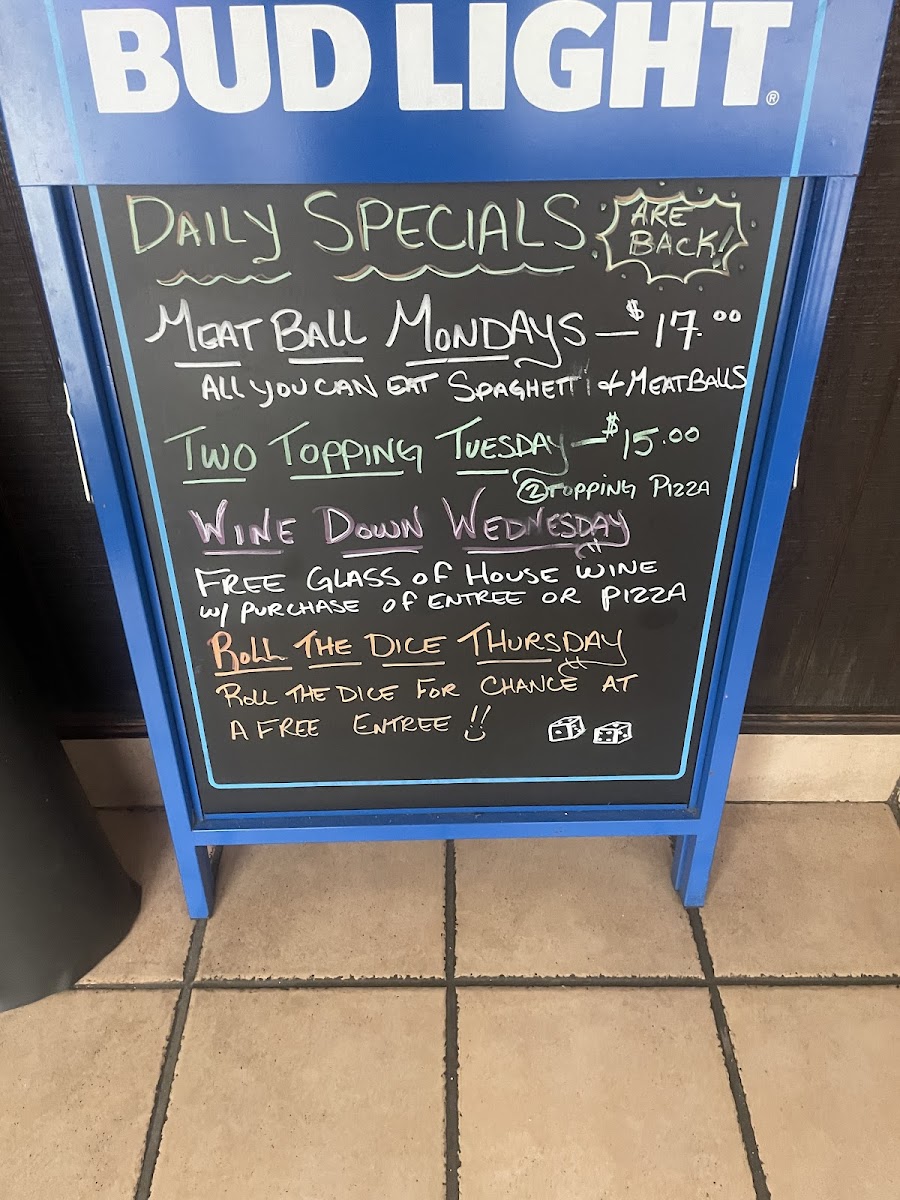 BUD LIGHT®
DAILY SPECIALS ARE BACK!
MEATBALL MONDAYS — $17.00
ALL YOU CAN EAT SPAGHETTI & MEATBALLS
TWO TOPPING TUESDAY — $15.00
2 TOPPING PIZZA
WINE DOWN WEDNESDAY
FREE GLASS OF HOUSE WINE
W/ PURCHASE OF ENTREE OR PIZZA
ROLL THE DICE THURSDAY
ROLL THE DICE FOR CHANCE AT
A FREE ENTREE !!